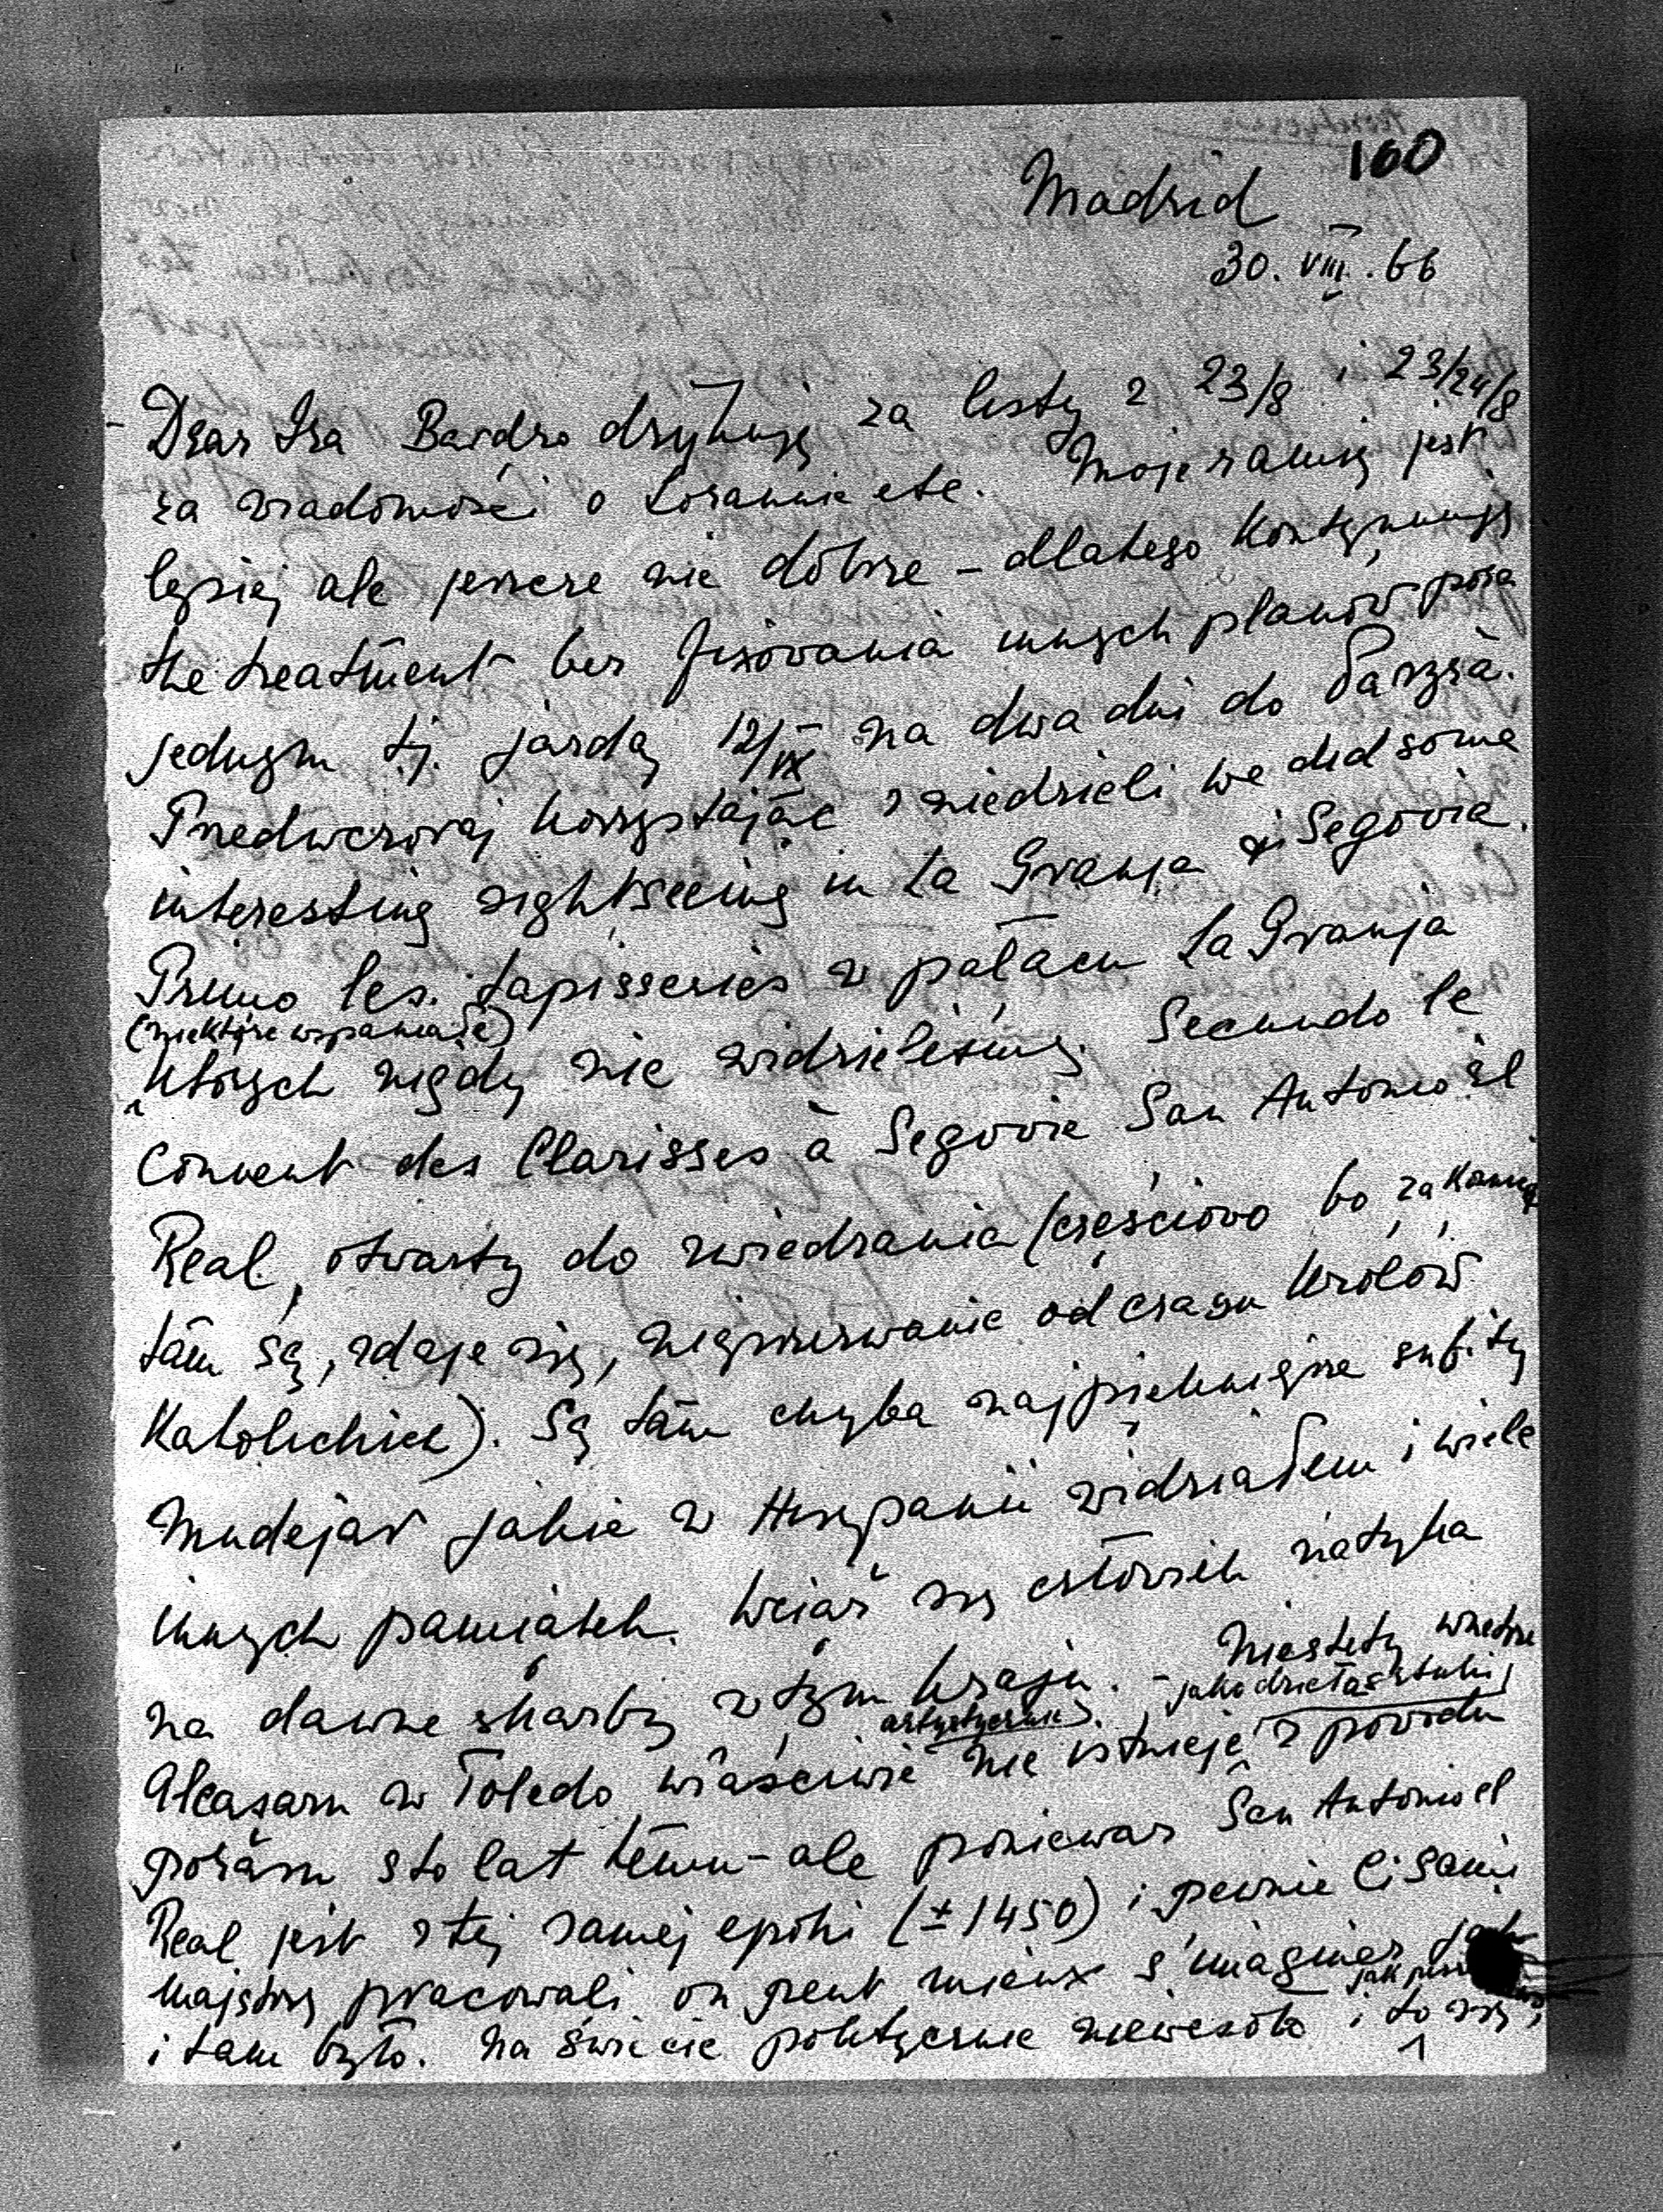 160
Madrid
30. VIII. 66
Dear Isa Bardzo dziękuję za listy z 23/8 i 23/24/8
za wiadomości o Lozannie etc. Moje ramię jest
lepiej ale jeszcze nie dobrze – dlatego kontynuuję
the treatment bez fixowania innych planów poza
jednym tj. jazdą 12/IX na dwa dni do Paryża.
Przedwczoraj korzystając z niedzieli we did some
interesting sightseeing in La Granja & Segovia.
Primo les tapisseries w pałacu La Granja
(niektóre wspaniałe)
których nigdy nie widzieliśmy. Secundo le
Convent des Clarisses à Segovie San Antonio el
Real, otwarty do zwiedzania (częściowo bo zakonnice
tam są, zdaje się, nieprzerwanie od czasu Królów
Katolickich). Są tam chyba najpiękniejsze sufity
Mudejar jakie w Hiszpanii widziałem i wiele
innych pamiątek. Wciąż się człowiek natyka
na dawne skarby w tym kraju. – Niestety wnętrze
artystycznie jako dzieła sztuki
Alcazaru w Toledo właściwie nie istnieje z powodu
pożaru sto lat temu – ale ponieważ San Antonio el
Real jest z tej samej epoki (± 1450) i pewnie ci sami
majstry pracowali on peut mieux s'imaginer jak
i tam było. Na świecie politycznie niewesoło i to się,